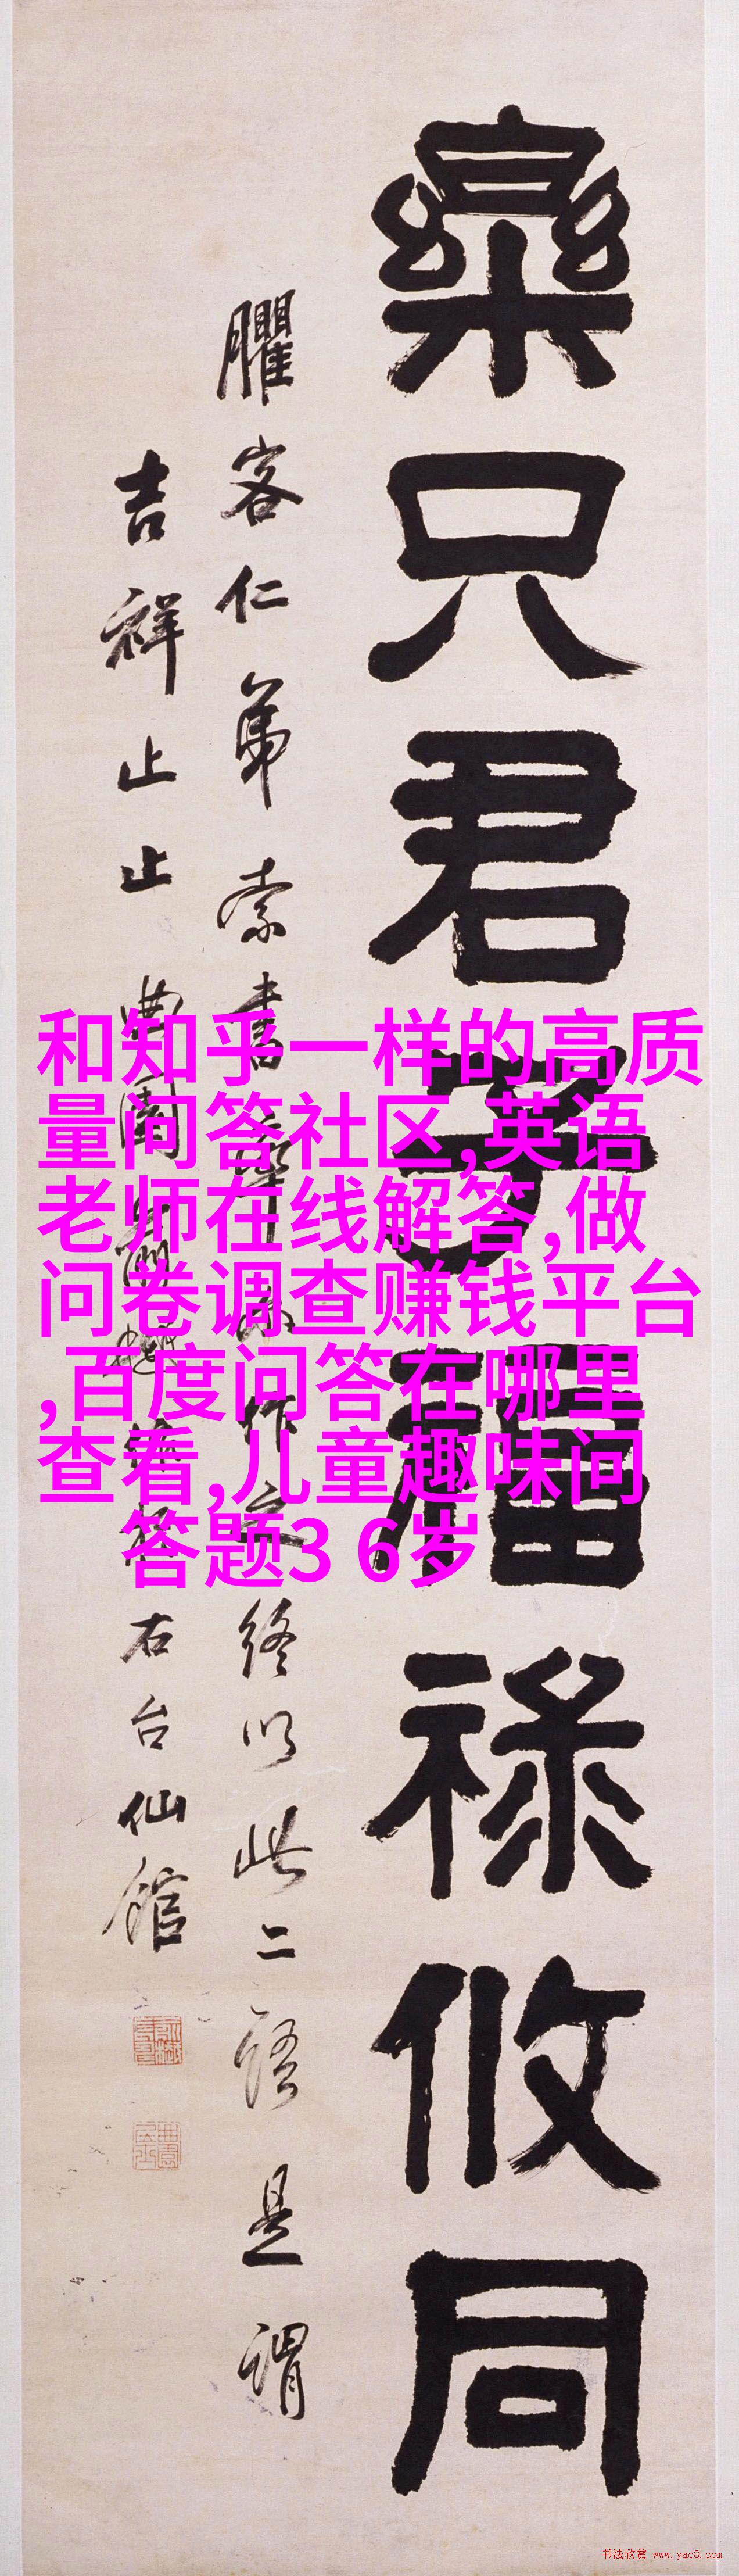 樂只君子福祿攸同
臞客仁弟索書
終以此二語是謂
吉祥止止
右台仙館
和知乎一样的高质
量问答社区,英语
老师在线解答,做
问卷调查赚钱平台
,百度问答在哪里
查看,儿童趣味问
答题3 6岁
书法欣赏 www.yac8.com